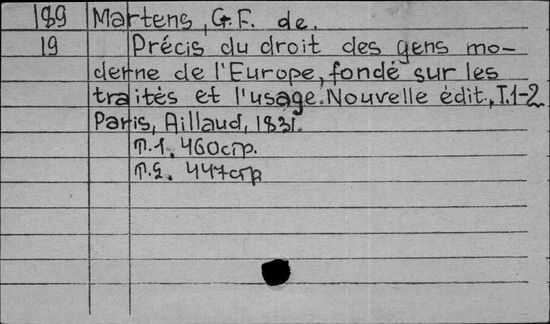 189 Martens, G.F. de.
19 Précis du droit des gens mo-
derne de l'Europe, fondé sur les
traités et l'usage. Nouvelle édit., T.1-2
Paris, Aillaud, 1831.
т.1. 460стр.
т.2. 447стр